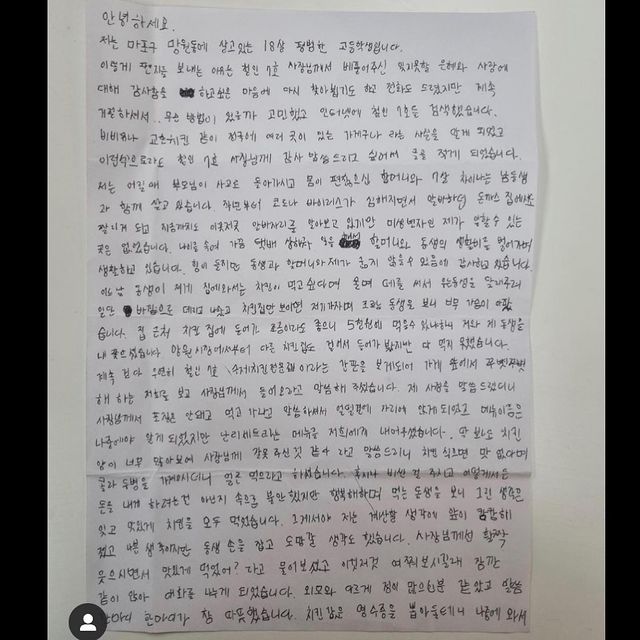 안녕하세요.
저는 마포구 망원동에 살고있는 18살 평범한 고등학생입니다.
이렇게 편지를 보내는 이유는 철인 7호 사장님께서 베풀어주신 잊지못할 은혜와 사랑에
대해 감사함을 하고싶은 마음에 다시 찾아뵙기도 하고 전화도 드렸지만 계속
거절하셔서.. 무슨 방법이 있을까 고민했고 인터넷에 철인 7호를 검색했습니다.
비비큐나 교촌치킨 같이 전국에 여러 곳이 있는 가게구나 라는 사실을 알게 되었고
이런식으로라도 철인 7호 사장님께 감사 말씀드리고 싶어서 글을 적게 되었습니다.
저는 어릴때 부모님이 사고로 돌아가시고 몸이 편찮으신 할머니와 7살 차이나는 남동생
과 함께 살고 있습니다. 작년부터 코로나 바이러스가 심해지면서 알바하던 돈까스 집에서도
짤리게 되고 지금까지도 이곳저곳 알바자리를 알아보고 있지만 미성년자인 제가 일할수 있는
곳은 없었습니다. 나이를 속여 가끔 택배 상하차 일을 할머니와 동생의 생활비를 벌어가며
생활하고 있습니다. 힘이 들지만 동생과 할머니와 제가 굶지 않을수 있음에 감사하고있습니다.
어느날 동생이 제게 집에와서는 치킨이 먹고싶다며 울며 떼를 써서 우는동생을 달래주려
일단 바깥으로 데리고 나왔고 치킨집만 보이면 저기가자며 조르는 동생을 보니 너무 가슴이 아팠
습니다. 집 근처 치킨 집에 들어가 조금이라도 좋으니 5천원에 먹을수 있냐하니 저와 제 동생을
내 쫓으셨습니다. 망원시장에서부터 다른 치킨집도 걸어서 들어가 봤지만 다 먹지 못했습니다.
계속 걷다 우연히 철인 7호 수제치킨전문점이라는 간판을 보게되어 가게 앞에서 쭈뼛쭈뼛
해 하는 저희를 보고 사장님께서 들어오라고 말씀해 주셨습니다. 제 사정을 말씀 드렸더니
사장님께서 포장은 안돼고 먹고 가라고 말씀하셔서 얼떨결에 자리에 앉게 되었고 메뉴이름은
나중에야 알게 되었지만 난리세트라는 메뉴를 저희에게 내어주셨습니다. 딱 봐도 치킨
양이 너무 많아보여 사장님께 잘못 주신것 같다 라고 말씀드리니 치킨 식으면 맛 없다며
콜라 두병을 가져오시더니 얼른 먹으라고 하셨습니다. 혹시나 비싼 걸 주시고 어떻게서든
돈을 내게 하려는건 아닌지 속으로 불안했지만 행복해하며 먹는 동생을 보니 그런 생각은
잊고 맛있게 치킨을 모두 먹었습니다. 그제서야 저는 계산할 생각에 앞이 캄캄해
졌고 나쁜 생각이지만 동생 손을 잡고 도망갈 생각도 했습니다. 사장님께선 활짝
웃으시면서 맛있게 먹었어? 라고 물어보셨고 이것저것 여쭤보시길래 잠깐
같이 앉아 대화를 나누게 되었습니다. 외모와 다르게 정이 많으신분 같았고 말씀
한마디 한마디가 참 따뜻했습니다. 치킨값은 영수증을 뽑아둘테니 나중에 와서